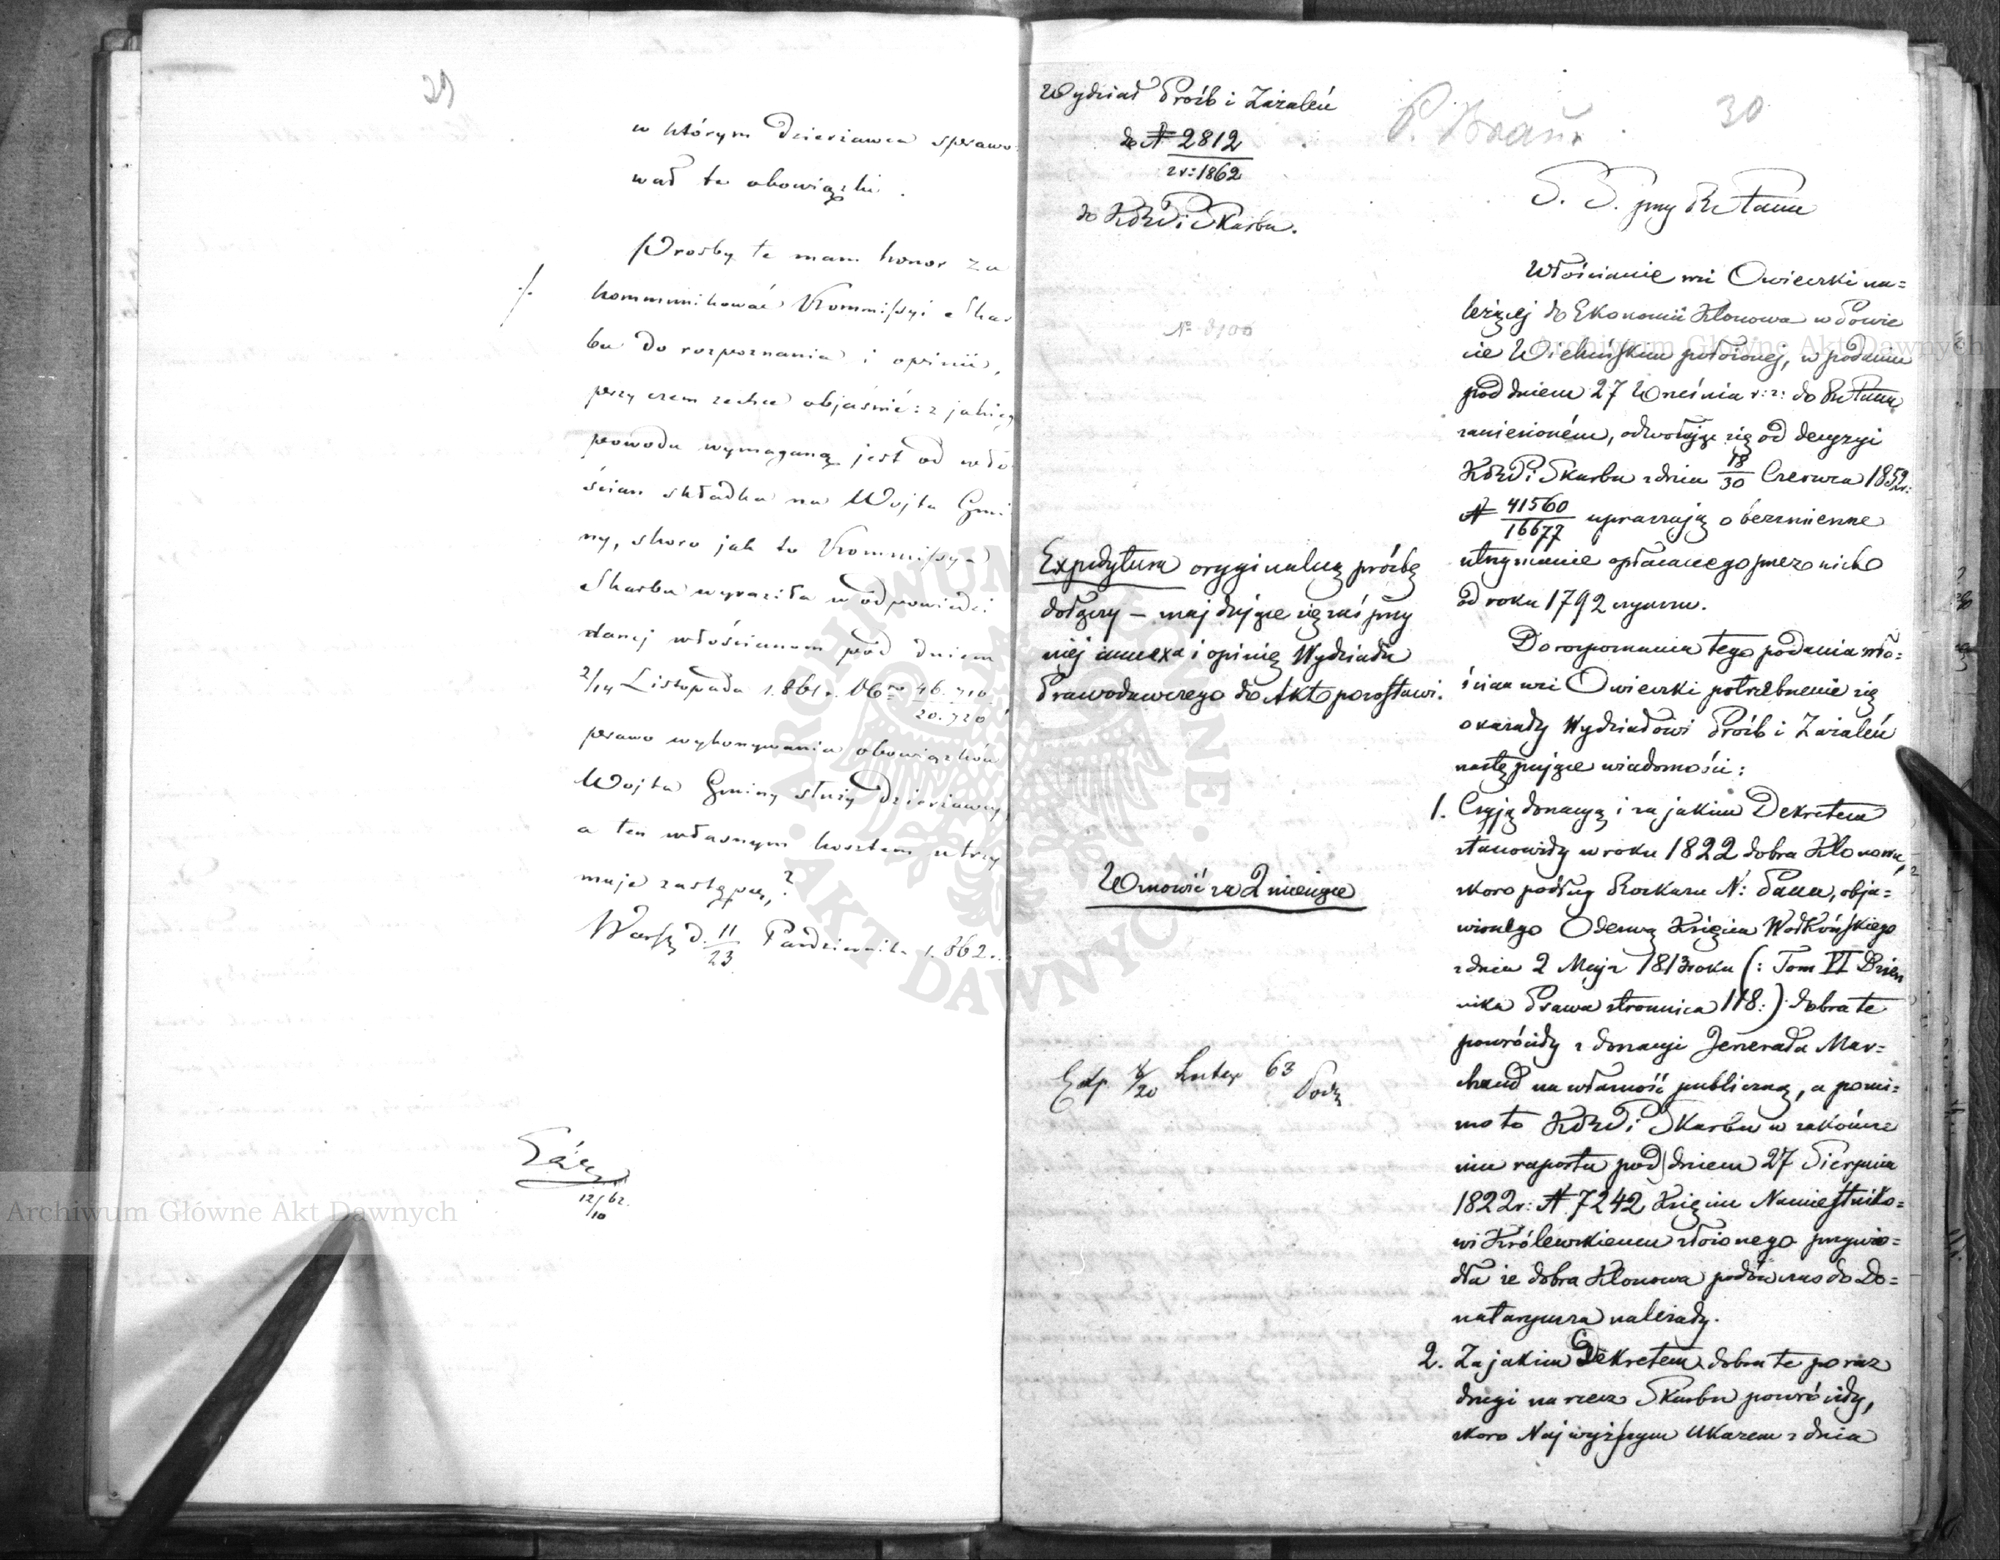 29
w którym Dzierżawca sprawo-
wał te obowiązki.
Prośby te mam honor za
kommunikować Kommissyi Skar
bu do rozpoznania i opinii,
przy czem zechce objaśnić: z jakiego
powodu wymaganą jest od wło-
ścian składka na Wojta Gmi
ny, skoro jak to Kommissya
Skarbu wyraziła w odpowiedzi
danej włościanom pod dniem
2/14 Listopada 1861 r. No 46.710
20.720
prawo wykonywania obowiązków
Wojta Gminy służy dzierżawcy,
a ten własnym kosztem utrzy
muje zastępcę?
Warsz d. 11/23 Października 1862 r.
12/10 62.
Wydział Próśb i Zażaleń
do N 2812
z r: 1862
do KRPi Skarbu.
30
Expedytura oryginalną prośbę
dołączy – znajdujące się zaś przy
niej annexa i opinię Wydziału
Prawodawczego do Akt pozostawi.
Wznowić za 2 miesiące
Exp. 8/20 Lutego 63
S. S. przy R Stanu
Włościanie wsi Owieczki na=
leżącej do Ekonomii Klonowa w Powie
cie Wieluńskim położonej, w podaniu
pod dniem 27 Września r: z: do R Stanu
zaniesioném, odwołując się od decyzyi
KRPi Skarbu z dnia 18/30 Czerwca 1852 r:
N 41560/16677 upraszają o bezmienne
utrzymanie opłacanego przez nich
od roku 1792 czynszu.
Do rozpoznania tego podania wło=
ścian wsi Owieczki potrzebnemi się
okazały Wydziałowi Próśb i Zażaleń
następujące wiadomości:
1. Czyją donacyą i za jakim Dekretem
stanowiły w roku 1822 dobra Klonowa,
skoro podług Rozkazu N: Pana, obja=
wionego Odezwą Księcia Wołkońskiego
z dnia 2 Maja 1813 roku (: Tom VI Dzien
nika Prawa stronnica 118:) dobra te
powróciły z donacyi Jenerała Mar=
chand na własność publiczną, a pomi=
mo to KRPi Skarbu w zakończe
niu raportu pod dniem 27 Sierpnia
1822 r: N. 7242 Księciu Namiestniko=
wi Królewskiemu złożonego przywio=
dła że dobra Klonowa podówczas do Do=
nataryusza należały.
2. Za jakim Dekretem dobra te po raz
drugi na rzecz Skarbu powróciły,
skoro Najwyższym Ukazem z dnia
Archiwum Główne Akt Dawnych
Archiwum Główne Akt Dawnych
ARCHIWUM GŁÓWNE AKT DAWNYCH